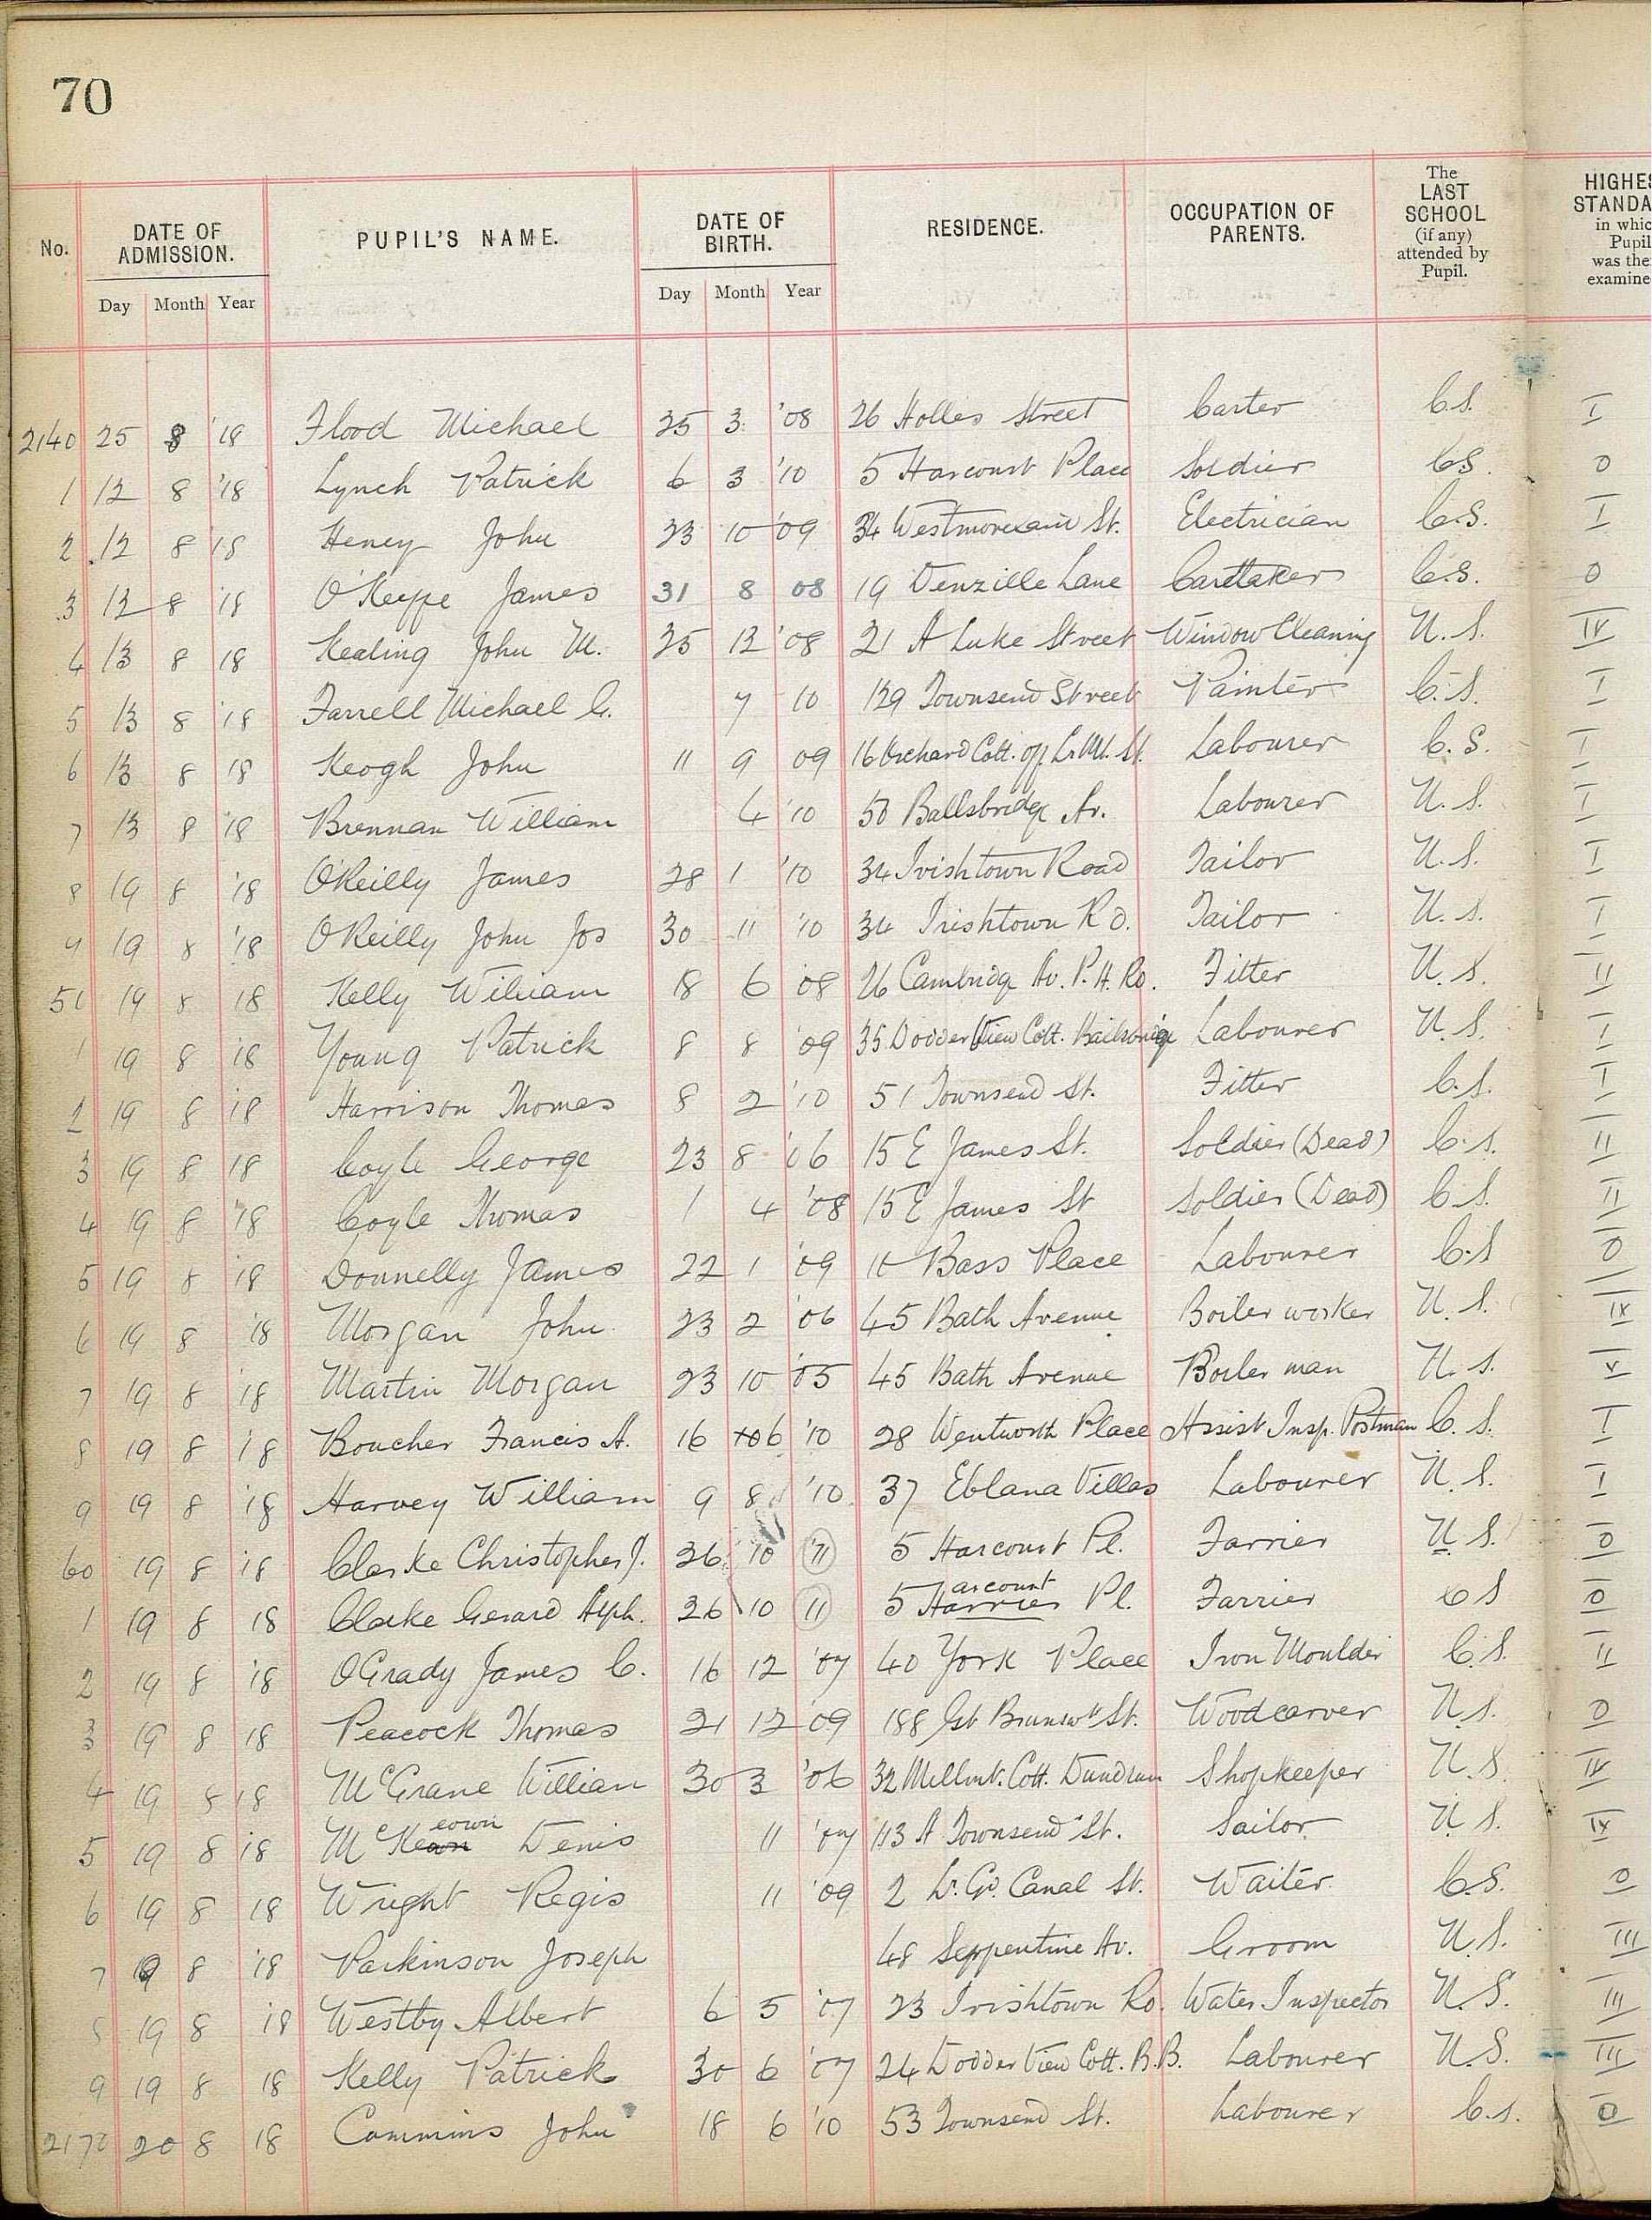 70
No. DATE OF ADMISSION. PUPIL'S NAME. DATE OF BIRTH. RESIDENCE. OCCUPATION OF PARENTS. The LAST SCHOOL (if any) attended by Pupil. HIGHES STANDA in whic Pupil was the examine
Day Month Year Day Month Year
2140 25 8 '18 Flood Michael 25 3 '08 26 Holles Street Carter C.S. I
1 13 8 '18 Lynch Patrick 6 3 '10 5 Harcourt Place Soldier C.S. 0
2 13 8 '18 Heney John 23 10 '09 34 Westmoreland St. Electrician C.S. I
3 13 8 '18 O'Keeffe James 31 8 08 19 Denzille Lane Caretaker C.S. 0
4 13 8 '18 Kealing John M. 25 12 '08 21 A Luke Street Window Cleaning N.S. IV
5 13 8 '18 Farrell Michael C. 7 10 139 Townsend Street Painter C.S. I
6 13 8 '18 Keogh John 11 9 09 16 Orchard Cott. off Lr. Mt. St. Labourer C.S. I
7 13 8 '18 Brennan William 4 '10 50 Ballsbridge Av. Labourer N.S. I
8 19 8 '18 O'Reilly James 28 1 '10 34 Irishtown Road Tailor N.S. I
9 19 8 '18 O'Reilly John Jos 30 11 '10 34 Irishtown Rd. Tailor N.S. I
50 19 8 18 Kelly William 18 6 '08 26 Cambridge Av. P.H. Rd. Fitter N.S. II
1 19 8 '18 Young Patrick 8 8 '09 35 Dodder View Cott. Ballsbridge Labourer N.S. I
2 19 8 '18 Harrison Thomas 8 2 '10 51 Townsend St. Fitter C.S. I
3 19 8 '18 Coyle George 23 8 '06 15 E James St. Soldier (Dead) C.S. II
4 19 8 '18 Coyle Thomas 1 4 '08 15 E James St Soldier (Dead) C.S. II
5 19 8 '18 Donnelly James 22 1 '09 10 Bass Place Labourer C.S 0
6 19 8 '18 Morgan John 23 2 '06 45 Bath Avenue Boiler worker N.S. IV
7 19 8 '18 Martin Morgan 23 10 '05 45 Bath Avenue Boiler man N.S. V
8 19 8 '18 Boucher Francis A. 16 6 '10 28 Wentworth Place Assist Insp. Postman C.S. I
9 19 8 '18 Harvey William 9 8 '10 37 Eblana Villas Labourer N.S. I
60 19 8 '18 Clarke Christopher J. 26 10 '11 5 Harcourt Pl. Farrier N.S. 0
1 19 8 18 Clarke Gerard Alph. 26 10 11 5 Harcourt Pl. Farrier C S 0
2 19 8 '18 O'Grady James C. 16 12 '07 40 York Place Iron Moulder C.S. II
3 19 8 18 Peacock Thomas 21 12 '09 188 Gt Brunswk St. Woodcarver N.S. 0
4 19 8 18 McGrane William 30 3 '06 32 Millmt. Cott. Dundrum Shopkeeper N.S. IV
5 19 8 '18 McKeown Denis 11 '07 113 A Townsend St. Sailor N.S. IV
6 19 8 18 Wright Regis 11 '09 2 Lr. Gd. Canal St. Waiter C.S. 0
7 19 8 '18 Parkinson Joseph 48 Serpentine Av. Groom N.S. III
8 19 8 '18 Westby Albert 6 5 '07 23 Irishtown Rd. Water Inspector N.S. III
9 19 8 18 Kelly Patrick 30 6 '07 24 Dodder View Cott. B.B. Labourer N.S. III
2170 20 8 18 Cammins John 18 6 '10 53 Townsend St. Labourer C.S. 0